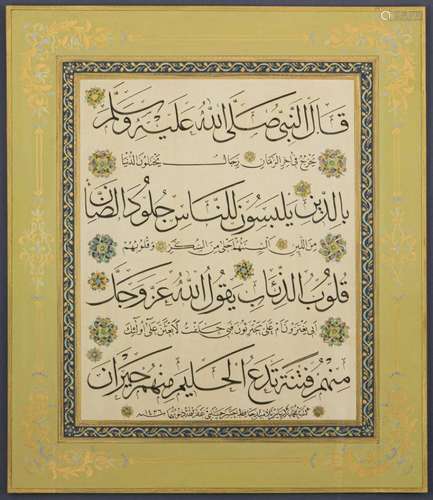 قال النبي صلى الله عليه وسلم
يخرج في آخر الزمان رجال يختلون الدنيا
بالدين يلبسون للناس جلود الضأن
من اللين ألسنتهم أحلى من السكر وقلوبهم
قلوب الذئاب يقول الله عز وجل
أبي يغترون أم علي يجترئون فبي حلفت لأبعثن على أولئك
منهم فتنة تدع الحليم منهم حيران